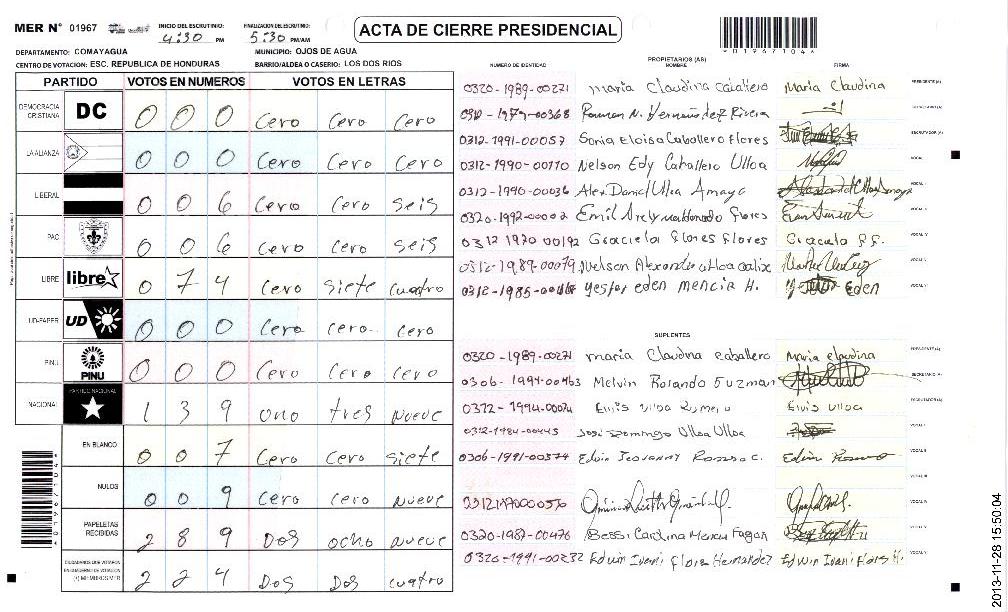 MER N° 01967
INICIO DEL ESCRUTINIO: 4:30 PM
FINALIZACION DEL ESCRUTINIO: 5:30 PM/AM
ACTA DE CIERRE PRESIDENCIAL
DEPARTAMENTO: COMAYAGUA
MUNICIPIO: OJOS DE AGUA
CENTRO DE VOTACION: ESC. REPUBLICA DE HONDURAS
BARRIO/ALDEA O CASERIO: LOS DOS RIOS
PARTIDO VOTOS EN NUMEROS VOTOS EN LETRAS
DEMOCRACIA CRISTIANA DC 0 0 0 Cero Cero Cero
LA ALIANZA 0 0 0 Cero Cero Cero
LIBERAL 0 0 6 Cero Cero Seis
PAC 0 0 6 Cero Cero Seis
LIBRE libre 0 7 4 Cero Siete cuatro
UD-FAPER UD 0 0 0 Cero Cero Cero
PINU PINU 0 0 0 Cero Cero Cero
NACIONAL PARTIDO NACIONAL 1 3 9 Uno tres Nueve
EN BLANCO 0 0 7 Cero Cero Siete
NULOS 0 0 9 Cero Cero Nueve
PAPELETAS RECIBIDAS 2 8 9 Dos ocho nueve
CIUDADANOS QUE VOTARON EN CUADERNO DE VOTACION (+) MIEMBROS MER 2 2 4 Dos Dos cuatro
PROPIETARIOS (AS)
NUMERO DE IDENTIDAD NOMBRE FIRMA
0320-1989-00271 maria Claudina Caballero Maria Claudina PRESIDENTE (A)
Hernandez Rivera
0312-1991-00057 Sonia Eloisa Caballero Flores ESCRUTADOR (A)
0312-1990-00110 Nelson Edy Caballero Ulloa VOCAL
0312-1990-00036 Alex Daniel Ulloa Amaya
0320-1992-00002 Emil Arely maldonado flores
0312 1970 00192 Graciela Flores Flores Graciela F.F.
0312-1989-00079 Nelson Alexander ulloa
0312-1985- yester eden mencia H. Eden
SUPLENTES
0320-1989-00271 maria Claudina caballero Maria claudina PRESIDENTE (A)
0306-1994-00463 Melvin Rolando Guzman SECRETARIO (A)
0322-1994-00024 Elvis Ulloa Romero Elvis Ulloa ESCRUTADOR (A)
0312-1984-00445 Jose Domingo Ulloa Ulloa
0306-1991-00574 Edwin Jeovanny Romero C. Edwin Romero
0320-1987-00476 Bessi Carolina
0320-1991-00232 Edwin Ivani Flores Hernandez Edwin Ivani Flores H.
*019671044*
2013-11-28 15:50:04